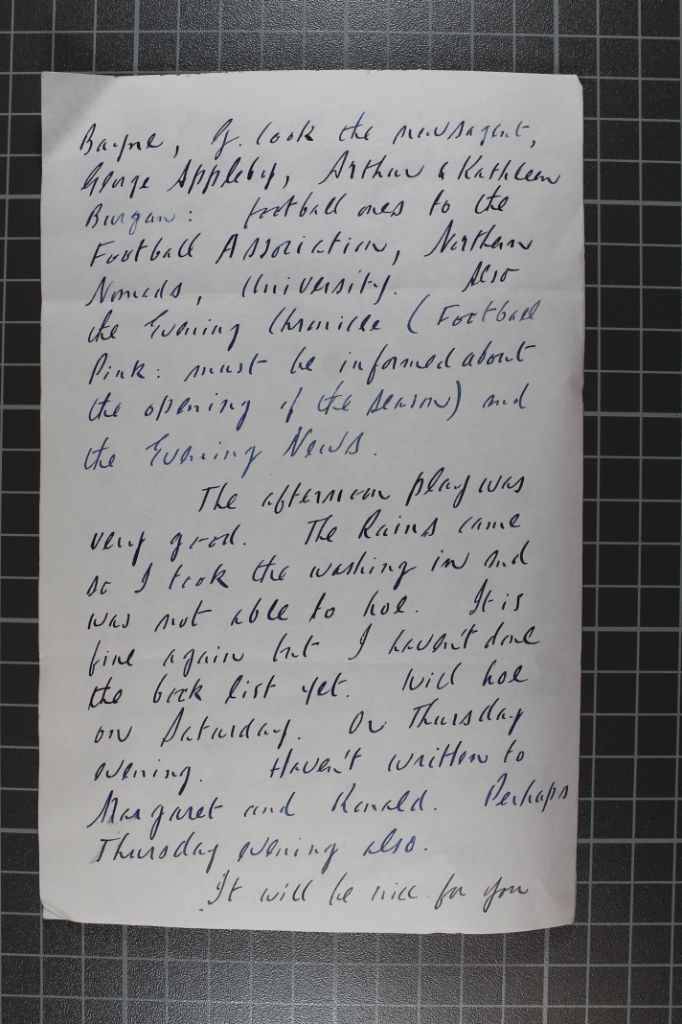 Bayne, G. Cook the newsagent,
George Appleby, Arthur & Kathleen
Burgan: football ones to the
Football Association, Northern
Nomads, University. Also
the Evening Chronicle (Football
Pink: must be informed about
the opening of the season) and
the Evening News.
The afternoon play was
very good. The Rains came
so I took the washing in and
was not able to hoe. It is
fine again but I haven't done
the book list yet. Will hoe
on Saturday. Or Thursday
evening. Haven't written to
Margaret and Ronald. Perhaps
Thursday evening also.
It will be nice for you